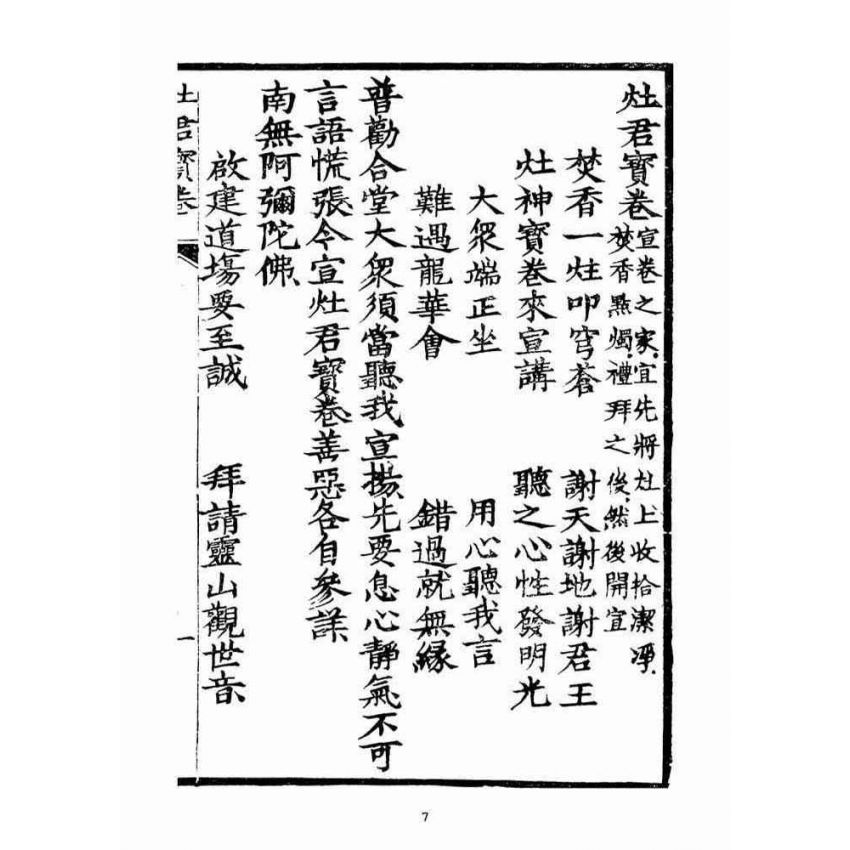 灶君寳卷宣卷之家宜先將灶上收拾潔淨
焚香點燭禮拜之後然後開宣
焚香一炷叩穹蒼　謝天謝地謝君王
灶神寳卷來宣講　聽之心性發明光
大衆端正坐　用心聽我言
難遇龍華會　錯過就無緣
普勸合堂大衆須當聽我宣揚先要息心靜氣不可
言語慌張今宣灶君寳卷善惡各自參詳
南無阿彌陀佛
啟建道塲要至誠　拜請靈山觀世音
灶君寳卷
一
7